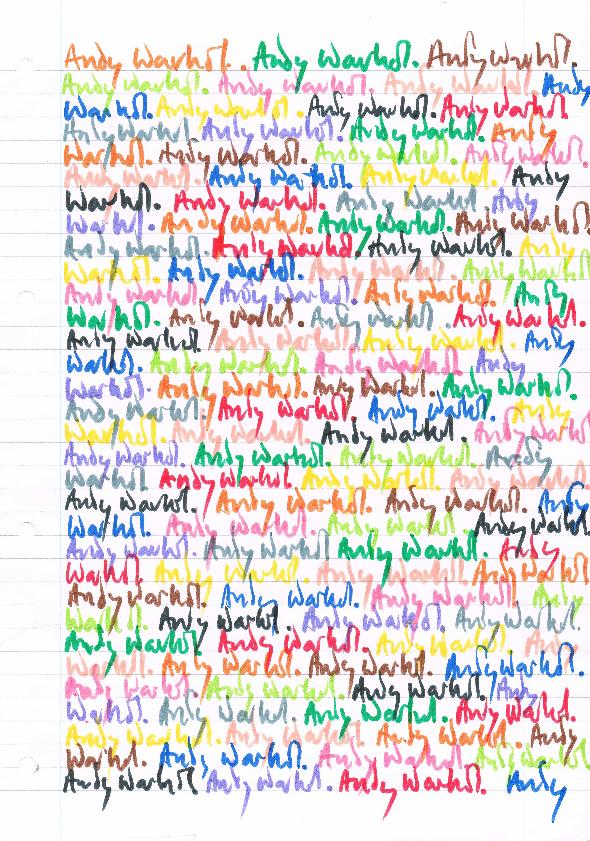 Andy Warhol. Andy Warhol. Andy Warhol.
Andy Warhol. Andy Warhol. Andy Warhol. Andy
Warhol. Andy Warhol. Andy Warhol. Andy Warhol.
Andy Warhol. Andy Warhol. Andy Warhol. Andy
Warhol. Andy Warhol. Andy Warhol. Andy Warhol.
Andy Warhol. Andy Warhol. Andy Warhol. Andy
Warhol. Andy Warhol. Andy Warhol. Andy
Warhol. Andy Warhol. Andy Warhol. Andy Warhol.
Andy Warhol. Andy Warhol. Andy Warhol. Andy
Warhol. Andy Warhol. Andy Warhol. Andy Warhol.
Andy Warhol. Andy Warhol. Andy Warhol. Andy
Warhol. Andy Warhol. Andy Warhol. Andy Warhol.
Andy Warhol. Andy Warhol. Andy Warhol. Andy
Warhol. Andy Warhol. Andy Warhol. Andy
Warhol. Andy Warhol. Andy Warhol. Andy Warhol.
Andy Warhol. Andy Warhol. Andy Warhol. Andy
Warhol. Andy Warhol. Andy Warhol. Andy Warhol
Andy Warhol. Andy Warhol. Andy Warhol. Andy
Warhol. Andy Warhol. Andy Warhol. Andy Warhol
Andy Warhol. Andy Warhol. Andy Warhol. Andy
Warhol. Andy Warhol. Andy Warhol. Andy Warhol.
Andy Warhol. Andy Warhol Andy Warhol. Andy
Warhol. Andy Warhol. Andy Warhol. Andy Warhol
Andy Warhol. Andy Warhol. Andy Warhol. Andy
Warhol. Andy Warhol. Andy Warhol. Andy Warhol.
Andy Warhol. Andy Warhol. Andy Warhol. Andy
Warhol. Andy Warhol. Andy Warhol. Andy Warhol.
Andy Warhol. Andy Warhol. Andy Warhol. Andy
Warhol. Andy Warhol. Andy Warhol. Andy Warhol.
Andy Warhol. Andy Warhol. Andy Warhol. Andy
Warhol. Andy Warhol. Andy Warhol. Andy Warhol.
Andy Warhol. Andy Warhol. Andy Warhol. Andy